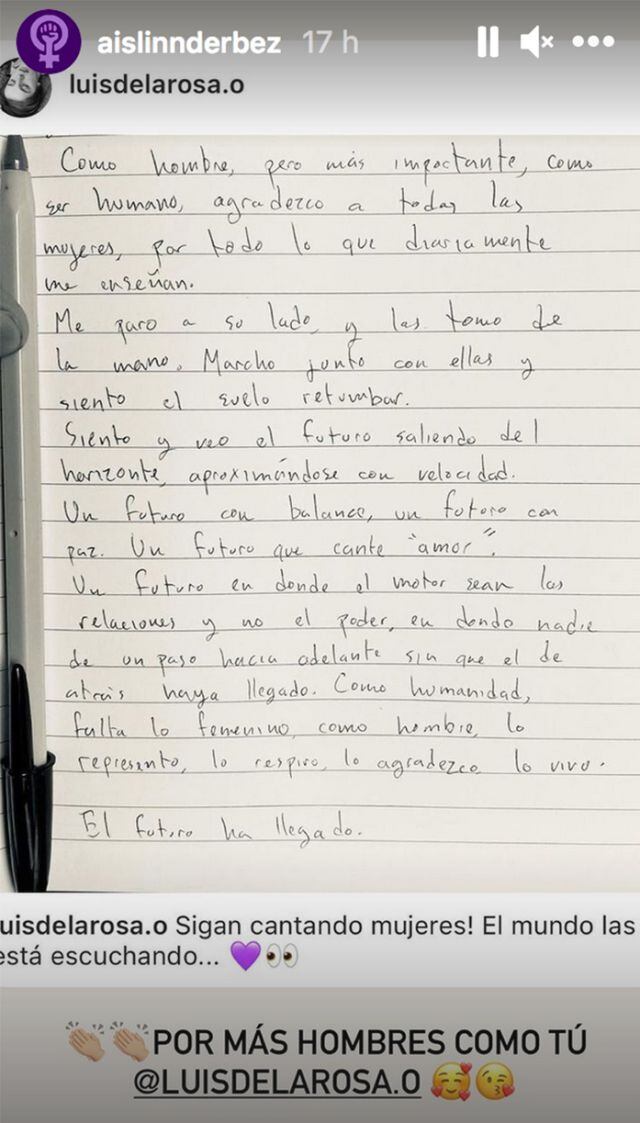 aislinnderbez 17 h
luisdelarosa.o
Como hombre, pero más importante, como
ser humano, agradezco a todas las
mujeres, por todo lo que diariamente
me enseñan.
Me paro a su lado, y las tomo de
la mano. Marcho junto con ellas y
siento el suelo retumbar.
Siento y veo el futuro saliendo del
horizonte, aproximándose con velocidad.
Un futuro con balance, un futuro con
paz. Un futuro que cante "amor".
Un futuro en donde el motor sean las
relaciones y no el poder, en donde nadie
de un paso hacia adelante sin que el de
atrás haya llegado. Como humanidad,
falta lo femenino, como hombre, lo
represento, lo respiro, lo agradezco, lo vivo.
El futuro ha llegado.
uisdelarosa.o Sigan cantando mujeres! El mundo las
está escuchando... 💜👀
👏🏼👏🏼POR MÁS HOMBRES COMO TÚ
@LUISDELAROSA.O 🥰😘